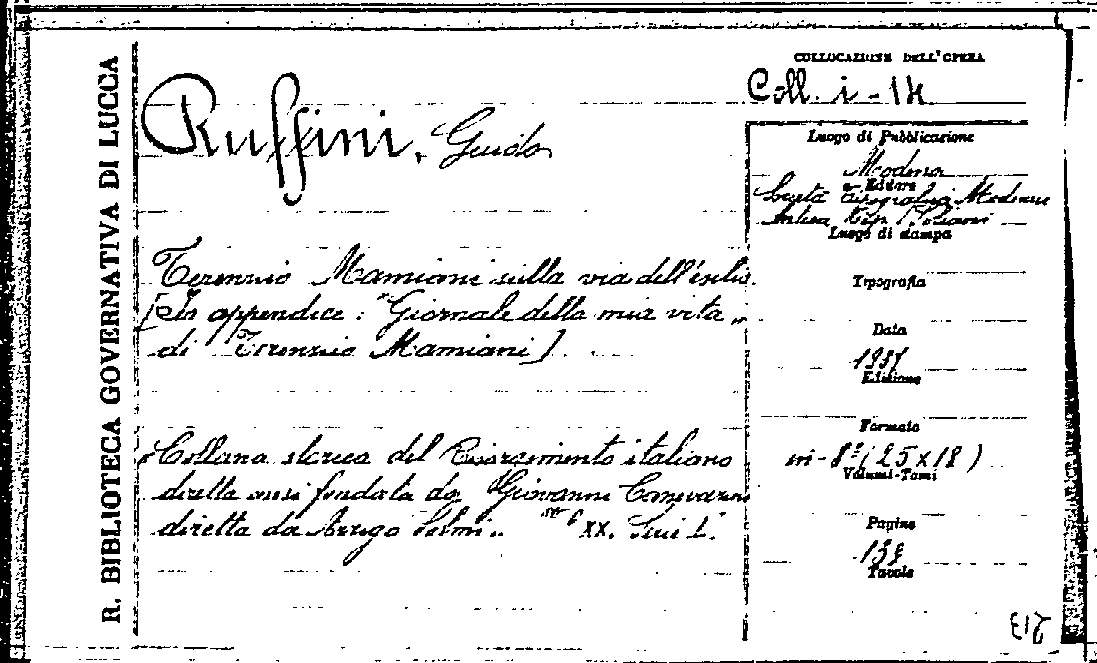 R. BIBLIOTECA GOVERNATIVA DI LUCCA
Ruffini, Guido
Terenzio Mamiani sulla via dell'esilio.
[In appendice: "Giornale della mia vita"
di Terenzio Mamiani]
Collana storica del Risorgimento italiano
fondata da Giovanni
diretta da Arrigo Solmi. Serie I.
COLLOCAZIONE DELL'OPERA
Coll. i - 14
Luogo di Pubblicazione
Modena
Editore
Società Tipografica Modenese
Antica Tip. Soliani
Luogo di stampa
Tipografia
Data
Edizione
Formato
in-8° (25x18)
Volumi-Tomi
Pagine
Tavole
213